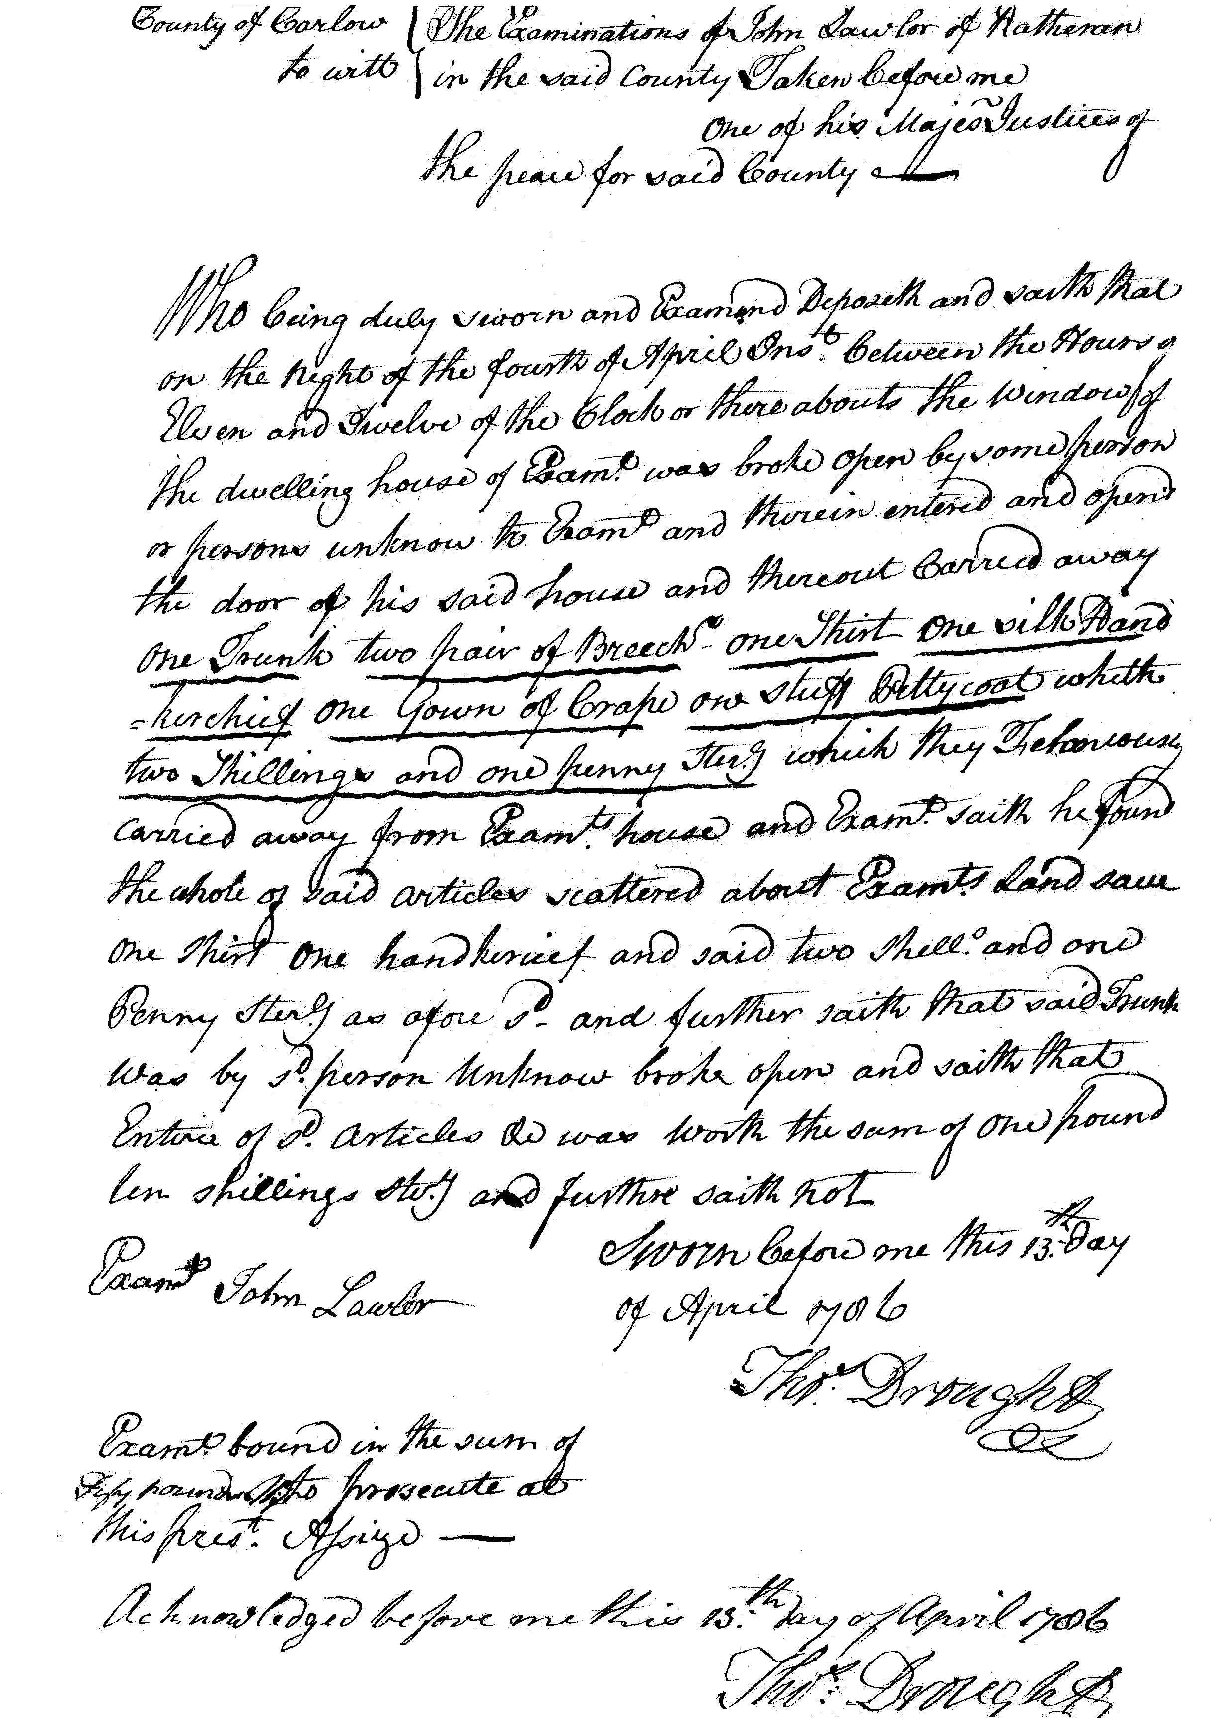 County of Carlow { The Examinations of John Lawlor of Ratheran
to witt { in the said County Taken before me
One of his Majes Justices of
the peace for said County
Who being duly sworn and Examend Deposeth and saith that
on the Night of the fourth of April Inst. between the Hours of
Eleven and Twelve of the Clock or there abouts the Window of
the dwelling house of Examt. was broke open by some person
or persons unknow to Examt and therein entered and opend
the door of his said house and thereout Carried away
One Trunk two pair of Breechs one Shirt One silk Hand
=kerchief One Gown of Crape one stuff Pettycoat whith
two Shillings and one penny Sterg which they Feloniously
carried away from Examts. house and Examt. saith he found
the whole of said articles scattered about Examts Land save
One Shirt One handkericef and said two Shells. and one
Penny Sterg as afore sd and further saith that said Trunk
Was by sd. person Unknow broke open and saith that
Entire of sd. Articles &c was Worth the sum of One pound
ten shillings Sterg and furthre saith not
Sworn before me this 13th. Day
Examt John Lawlor
of April 1786
Thos. Drought
Examt. bound in the sum of
Fifty pounds to prosecute at
this prest. Assize
Acknowledged before me this 13th. day of April 1786
Thos. Drought